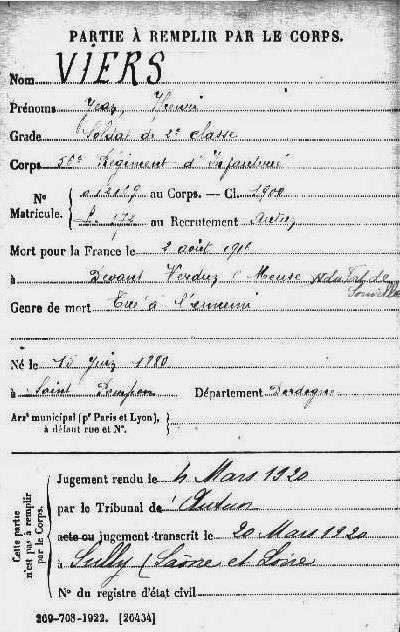 PARTIE À REMPLIR PAR LE CORPS.
Nom VIERS
Prénoms Jean, Henri
Grade Soldat de 2e classe
Corps 50e Régiment d'Infanterie
N° Matricule. { 012019 au Corps. — Cl. 1900
P. 172 au Recrutement Autun
Mort pour la France le 2 août 1916
à Devant Verdun (Meuse) Fort de Souville
Genre de mort Tué à l'ennemi
Né le 15 Juin 1880
à Saint Pompon Département Dordogne
Arrt municipal (pr Paris et Lyon), à défaut rue et N°.
Cette partie n'est pas à remplir par le Corps.
Jugement rendu le 4 Mars 1920
par le Tribunal de Autun
acte ou jugement transcrit le 20 Mars 1920
à Sully (Saône et Loire
N° du registre d'état civil
269-708-1922. [26434]